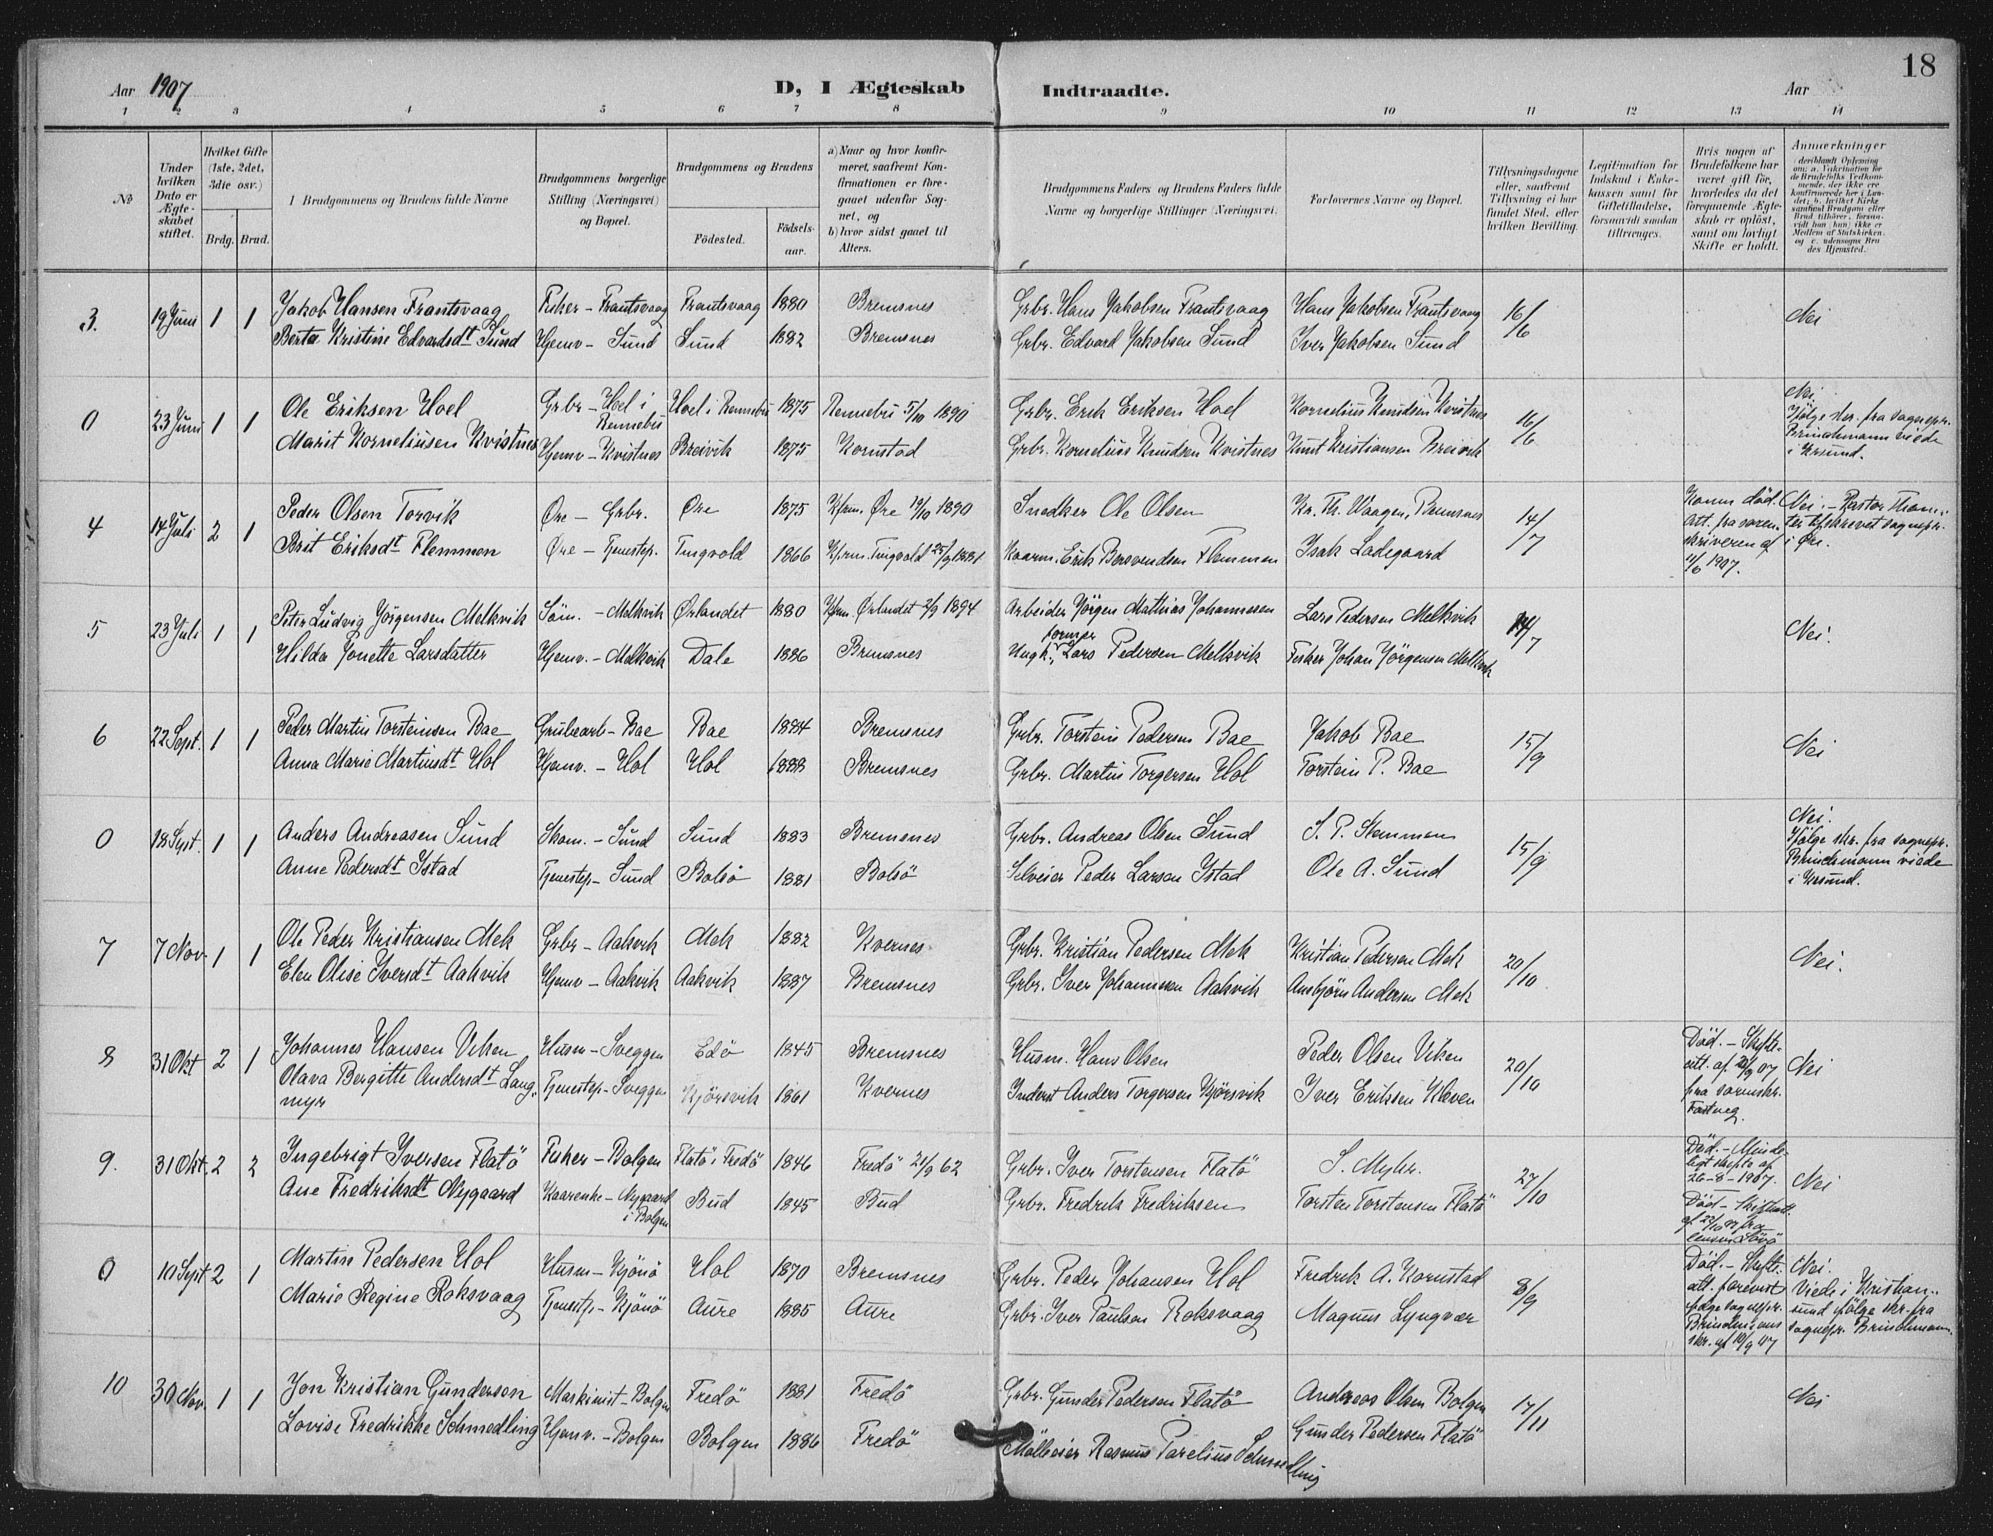 18
Aar 1907 D, I Ægteskab Indtraadte. Aar
1 2 3 4 5 6 7 8 9 10 11 12 13 14
No
Under hvilken Dato er Ægteskabet stiftet.
Hvilket Gifte (1ste, 2det, 3die osv.)
Brdg. Brud.
Brudgommens og Brudens fulde Navne
Brudgommens borgerlige Stilling (Næringsvei) og Bopæl.
Brudgommens og Brudens
Födested. Födselsaar.
a) Naar og hvor konfirmeret, saafremt Konfirmationen er foregaaet udenfor Sognet, og
b) hvor sidst gaaet til Alters.
Brudgommens Faders og Brudens Faders fulde Navne og borgerlige Stillinger (Næringsvei).
Forlovernes Navne og Bopæl.
Tillysningsdagene eller, saafremt Tillysning ei har fundet Sted, efter hvilken Bevilling.
Legitimation for Indskud i Enkekassen samt for Giftetilladelse, forsaavidt saadan tiltrænges.
Hvis nogen af Brudefolkene har været gift för, hvorledes da det foregaaende Ægteskab er oplöst, samt om lovligt Skifte er holdt.
Anmærkninger
(deriblandt Oplysning om: a. Vakcination for de Brudefolks Vedkommende, der ikke ere konfirmerede her i Landet; b. hvilket Kirkesamfund Brudgom eller Brud tilhörer, forsaavidt han (hun) ikke er Medlem af Statskirken, og c. udensogns Brudes Hjemsted.
3. 19 Juni 1 1 Jakob Hansen Frantsvaag Fisker - Frantsvaag Frantsvaag 1880 Bremsnes Grbr. Hans Jakobsen Frantsvaag Hans Jakobsen Frantsvaag 16/6 Nei
Berta Kristine Edvardsdt Sund Hjemv - Sund Sund 1882 Bremsnes Grbr. Edvard Jakobsen Sund Iver Jakobsen Sund
0 23 Juni 1 1 Ole Eriksen Hoel Grbr - Hoel i Rennebu Hoel i Rennebu 1875 Rennebu 5/10 1890 Grbr. Erik Eriksen Hoel Kornelius Knudsen Kvistnes 16/6 Nei. Ifølge skr. fra sognepr. Brinchmann viede i Krsund.
Marit Korneliusen Kvistnes Hjemv - Kvistnes Breivik 1875 Kornstad Grbr. Kornelius Knudsen Kvistnes Knut Kristiansen Breivik
4 14 Juli 2 1 Peder Olsen Torvik Øre - Grbr. Øre 1875 Kfrm. Øre 19/10 1890 Snedker Ole Olsen Kr. Th. Waagen, Bremsnes 14/7 Konen död. Att. fra soren- skriveren af 11/6 1907. Nei. - Pastor i Øre.
Brit Eriksdt Flemmen Øre - Tjenestep. Tingvold 1866 Kfrm. Tingvold 25/9 1881 Kaarm. Erik Bersvendsen Flemmen Isak Ladegaard
5 23 Juli 1 1 Peter Ludvig Jörgensen Melkvik Söm. - Melkvik Ørlandet 1880 Kfrm. Ørlandet 2/9 1894 Arbeider Jörgen Mathias Johannesen Lars Pedersen Melkvik 14/7 Nei.
Hilda Jonette Larsdatter Hjemv. - Melkvik Dale 1886 Bremsnes Ungk., Lars Pedersen Melkvik Fisker Johan Jörgensen Melkvik
6 22 Sept. 1 1 Peder Martin Torsteinsen Bae Grubearb - Bae Bae 1884 Bremsnes Grbr. Torstein Pedersen Bae Jakob Bae 15/9 Nei
Anna Marie Martinsdt Hol Hjemv. - Hol Hol 1888 Bremsnes Grbr. Martin Torgersen Hol Torstein P. Bae
0 18 Sept. 1 1 Anders Andreasen Sund Skom. - Sund Sund 1883 Bremsnes Grbr. Andreas Olsen Sund S. P. Stemmen 15/9 Nei. Ifølge skr. fra sognepr. Brinchmann viede i Krsund.
Anne Pedersdt Istad Tjenestep - Sund Bolsö 1881 Bolsö Selveier Peder Larsen Istad Ole A. Sund
7 7 Nov. 1 1 Ole Peder Kristiansen Mek Grbr - Aakvik Mek 1882 Kvernes Grbr. Kristian Pedersen Mek Kristian Pedersen Mek 20/10 Nei.
Elen Olise Iversdt Aakvik Hjemv - Aakvik Aakvik 1887 Bremsnes Grbr. Iver Johannesen Aakvik Ansbjörn Andersen Mek
8 31 Okt 2 1 Johannes Hansen Viken Husm - Sveggen Edö 1845 Bremsnes Husm. Hans Olsen Peder Olsen Viken 20/10 Död. - Skifte- att. af 28/9 07 fra sorenskr. Nei
Olava Bergitte Andersdt Lang- myr Tjenestep - Sveggen Kjörsvik 1861 Kvernes Inderst Anders Torgersen Kjörsvik Iver Eriksen Kleven
9. 31 Okt. 2 2 Ingebrigt Iversen Flatö Fisker - Bolgen Flatö i Fredö 1846 Fredö 21/9 62 Grbr. Iver Torstensen Flatö S. Myhr. 27/10 Död. - Minde- ligt skifte af 26-8-1907. Nei
Ane Fredriksdt Nygaard Kaarenke - Nygaard i Bolgen Bud 1845 Bud Grbr. Fredrik Fredriksen Torsten Torstensen Flatö Död - Skifteatt.
0 10 Sept 2 1 Martin Pedersen Hol Husm - Kjönö Hol 1870 Bremsnes Grbr. Peder Johansen Hol Fredrik A. Kornstad 8/9 Död. - Skifte- att. forevist ifølge sognepr. Brinchmanns skr. af 10/9 07 Nei. Viede i Kristian- sund ifølge skr. fra sognepr. Brinchmann.
Marie Regine Roksvaag Tjenestep - Kjönö Aure 1885 Aure Grbr. Iver Paulsen Roksvaag Magnus Lyngvær
10 30 Nov. 1 1 Jon Kristian Gundersen Maskinist - Bolgen Fredö 1881 Fredö Grbr. Gunder Pedersen Flatö Andreas Olsen Bolgen 17/11 Nei
Lovise Fredrikke Schmedling Hjemv. - Bolgen Bolgen 1886 Fredö Mölleeier Rasmus Parelius Schmedling Gunder Pedersen Flatö